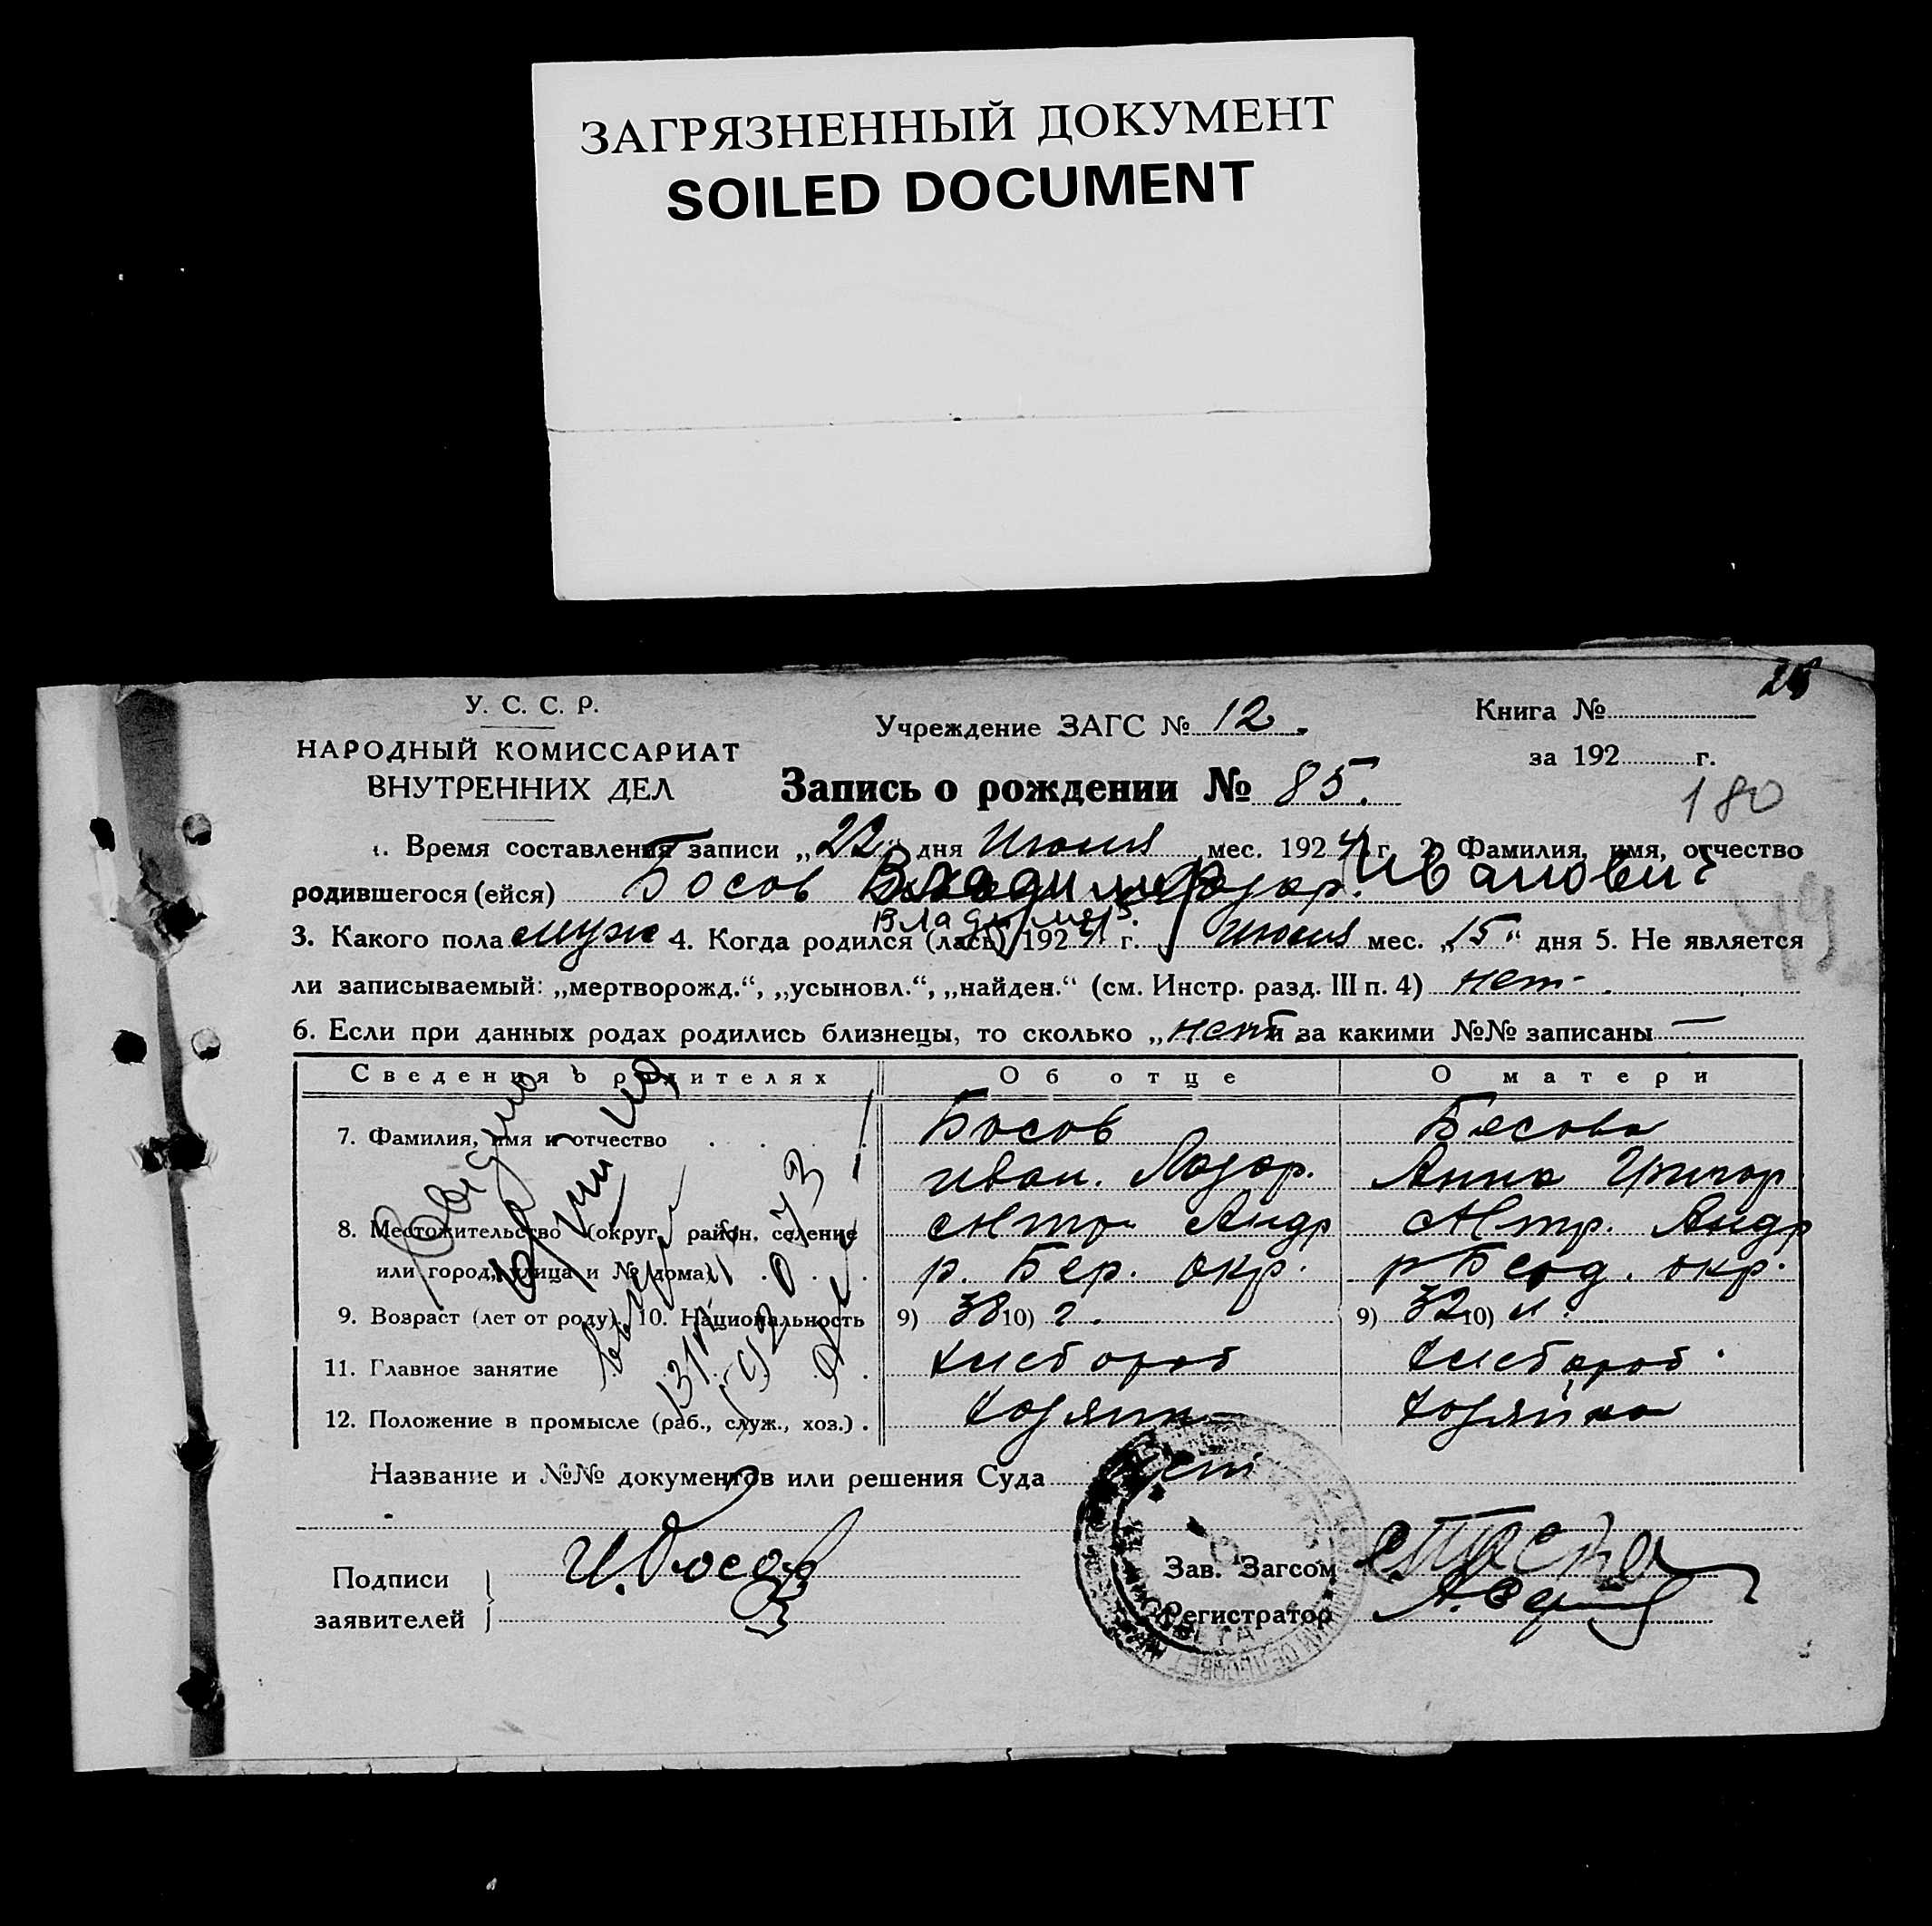 ЗАГРЯЗНЕННЫЙ ДОКУМЕНТ
SOILED DOCUMENT
28
У. С. С. Р.
НАРОДНЫЙ КОМИССАРИАТ
ВНУТРЕННИХ ДЕЛ
Учреждение ЗАГС № 12.
Книга №
за 192 г.
Запись о рождении № 85.
180
1. Время составления записи „22“ дня Июня мес. 1924 г. 2. Фамилия, имя, отчество
родившегося (ейся) Босов Владимир Иванович
Владимер.
49
3. Какого пола муж 4. Когда родился (лась) 1924 г. Июня мес. „15“ дня 5. Не является
ли записываемый: „мертворожд.“, „усыновл.“, „найден.“ (см. Инстр. разд. III п. 4) нет
6. Если при данных родах родились близнецы, то сколько „нет и за какими №№ записаны —
Сведения о родителях Об отце О матери
7. Фамилия, имя и отчество Босов Босова
Иван. Лазар. Анна Григор
8. Местожительство (округ, район, селение Андр Андр
или город, улица и № дома) р. Бер. окр. р Берд. окр.
9. Возраст (лет от роду). 10. Национальность 9) 38 10) 9) 32 10)
11. Главное занятие хлебороб хлебороб.
12. Положение в промысле (раб., служ., хоз.) хозяин хозяйка
Название и №№ документов или решения Суда нет
Подписи заявителей И. Босов
Зав. Загсом
Регистратор